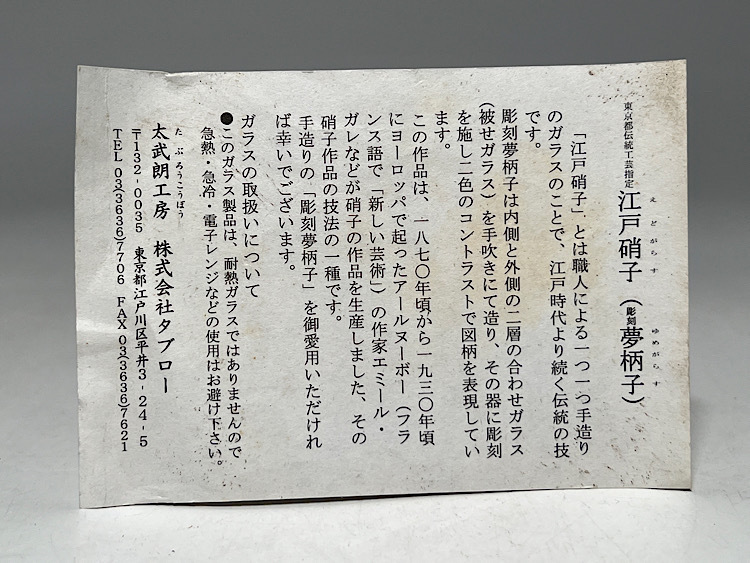 東京都伝統工芸指定
江戸硝子（彫刻夢柄子）
えどがらす
ゆめがらす
「江戸硝子」とは職人による一つ一つ手造り
のガラスのことで、江戸時代より続く伝統の技
です。
彫刻夢柄子は内側と外側の二層の合わせガラス
（被せガラス）を手吹きにて造り、その器に彫刻
を施し二色のコントラストで図柄を表現してい
ます。
この作品は、一八七〇年頃から一九三〇年頃
にヨーロッパで起ったアールヌーボー（フラ
ンス語で「新しい芸術」）の作家エミール・
ガレなどが硝子の作品を生産しました、その
硝子作品の技法の一種です。
手造りの「彫刻夢柄子」を御愛用いただけれ
ば幸いでございます。
ガラスの取扱いについて
●このガラス製品は、耐熱ガラスではありませんので
急熱・急冷・電子レンジなどの使用はお避け下さい。
たぶろうこうぼう
太武朗工房 株式会社タブロー
〒132-0035 東京都江戸川区平井3-24-5
TEL 03(3636)7706 FAX 03(3636)7621